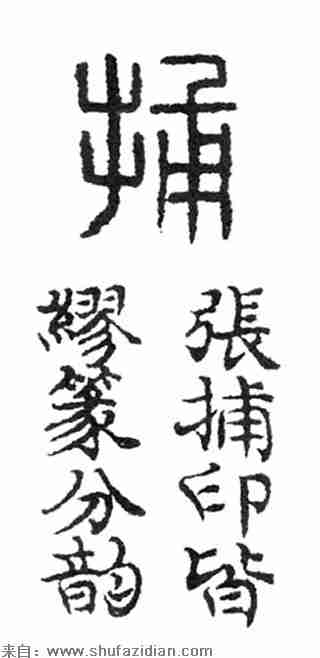 捕
張捕印皆
繆篆分韵
来自：www.shufazidian.com